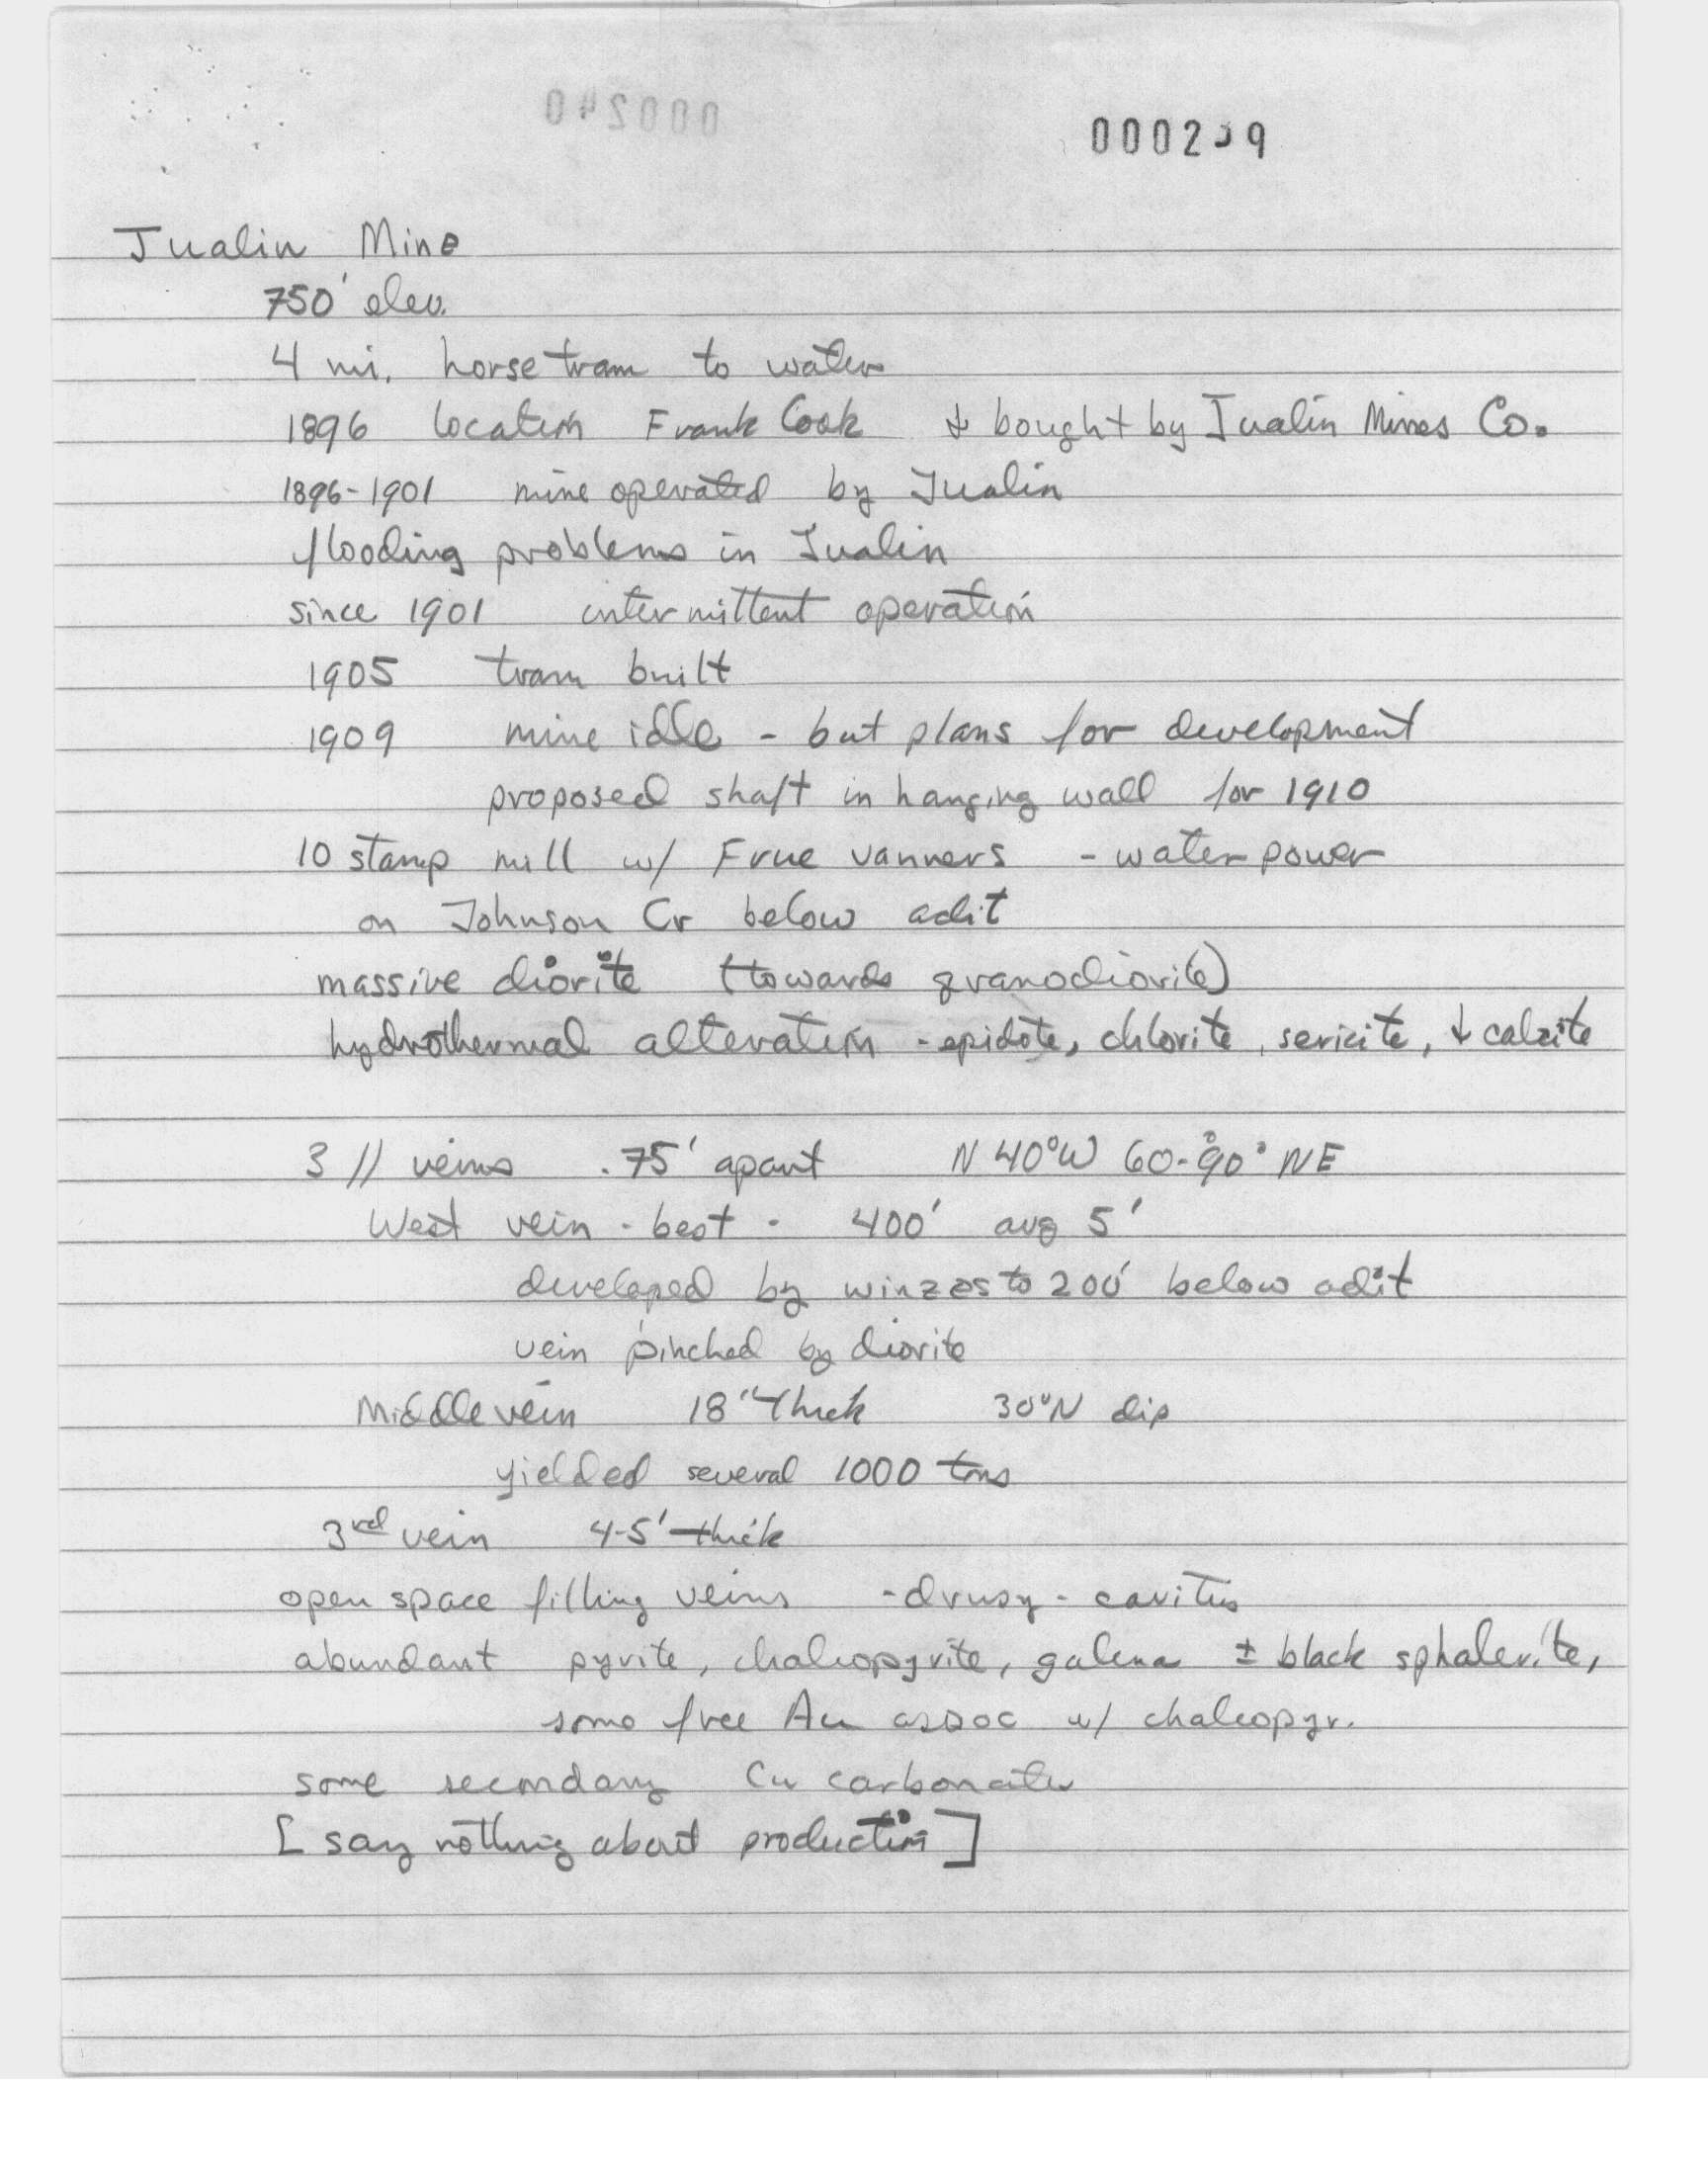 000240
000239
Jualin Mine
750' elev.
4 mi. horse tram to water
1896 location Frank Cook & bought by Jualin Mines Co.
1896-1901 mine operated by Jualin
flooding problems in Jualin
since 1901 intermittent operation
1905 tram built
1909 mine idle - but plans for development
proposed shaft in hanging wall for 1910
10 stamp mill w/ Frue vanners - water power
on Johnson Cr below adit
massive diorite (towards granodiorite)
hydrothermal alteration - epidote, chlorite, sericite, & calcite
3 // veins . 75' apart N 40°W 60-90° NE
West vein - best - 400' avg 5'
developed by winzes to 200' below adit
vein pinched by diorite
Middle vein 18" thick 30°N dip
yielded several 1000 tons
3rd vein 4-5' thick
open space filling veins - drusy - cavities
abundant pyrite, chalcopyrite, galena ± black sphalerite,
some free Au assoc w/ chalcopyr.
some secondary Cu carbonates
[say nothing about production]